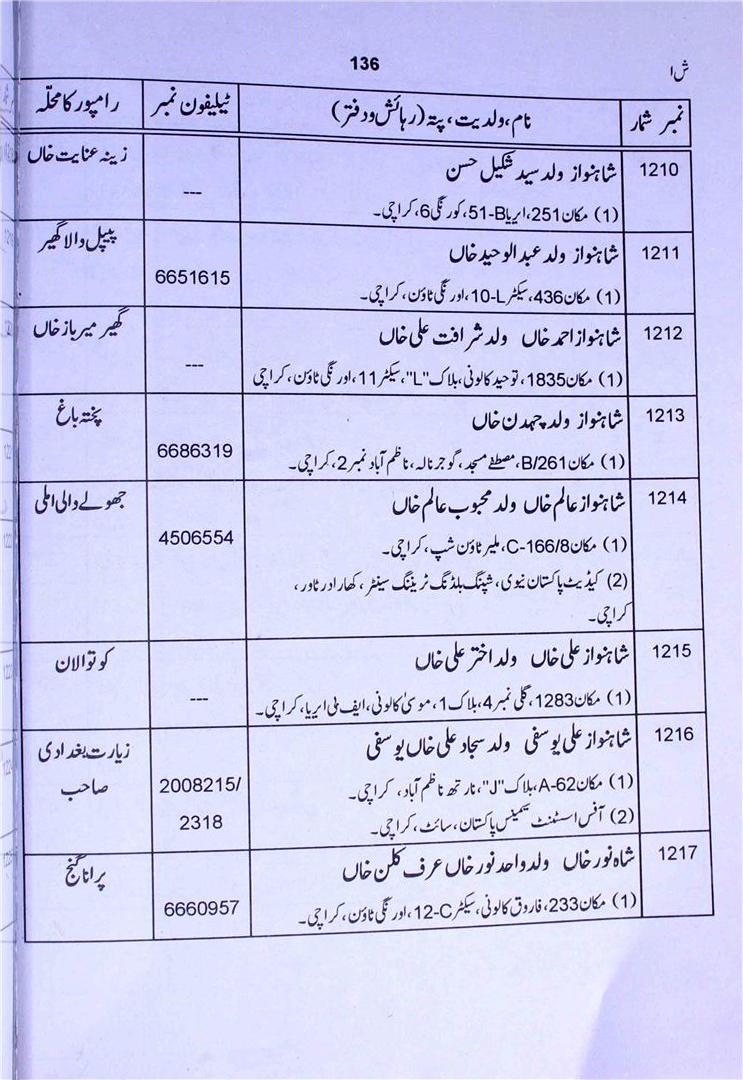 ش ا
136
نمبر شمار نام، ولدیت، پتہ (رہائش و دفتر) ٹیلیفون نمبر رامپور کا محلّہ
1210 شاہنواز ولد سید شکیل حسن زینہ عنایت خاں
(1) مکان251، ایریا51-B، کورنگی6، کراچی۔ ---
1211 شاہنواز ولد عبدالوحید خاں پیپل والا گھیر
(1) مکان436، سیکٹر10-L، اورنگی ٹاؤن، کراچی۔ 6651615
1212 شاہنواز احمد خاں ولد شرافت علی خاں گھیر میر باز خاں
(1) مکان1835، توحید کالونی، بلاک "L"، سیکٹر11، اورنگی ٹاؤن، کراچی ---
1213 شاہنواز ولد چھدن خاں پختہ باغ
(1) مکان261/B، مصطفےٰ مسجد، گوجر نالہ، ناظم آباد نمبر2، کراچی۔ 6686319
1214 شاہنواز عالم خاں ولد محبوب عالم خاں جھولے والی املی
(1) مکان166/8-C، ملیر ٹاؤن شپ، کراچی۔ 4506554
(2) کیڈیٹ پاکستان نیوی، شپنگ بلڈنگ ٹریننگ سینٹر، کھارادر ٹاور،
کراچی۔
1215 شاہنواز علی خاں ولد اختر علی خاں کوتوالان
(1) مکان1283، گلی نمبر4، بلاک1، موسیٰ کالونی، ایف بی ایریا، کراچی۔ ---
1216 شاہنواز علی یوسفی ولد سجاد علی خاں یوسفی زیارت بغدادی
(1) مکان62-A، بلاک "J"، نارتھ ناظم آباد، کراچی۔ 2008215/ صاحب
(2) آفس اسسٹنٹ سیمینس پاکستان، سائٹ، کراچی۔ 2318
1217 شاہ نور خاں ولد واحد نور خاں عرف کلن خاں پرانا گنج
(1) مکان233، فاروق کالونی، سیکٹر12-C، اورنگی ٹاؤن، کراچی۔ 6660957